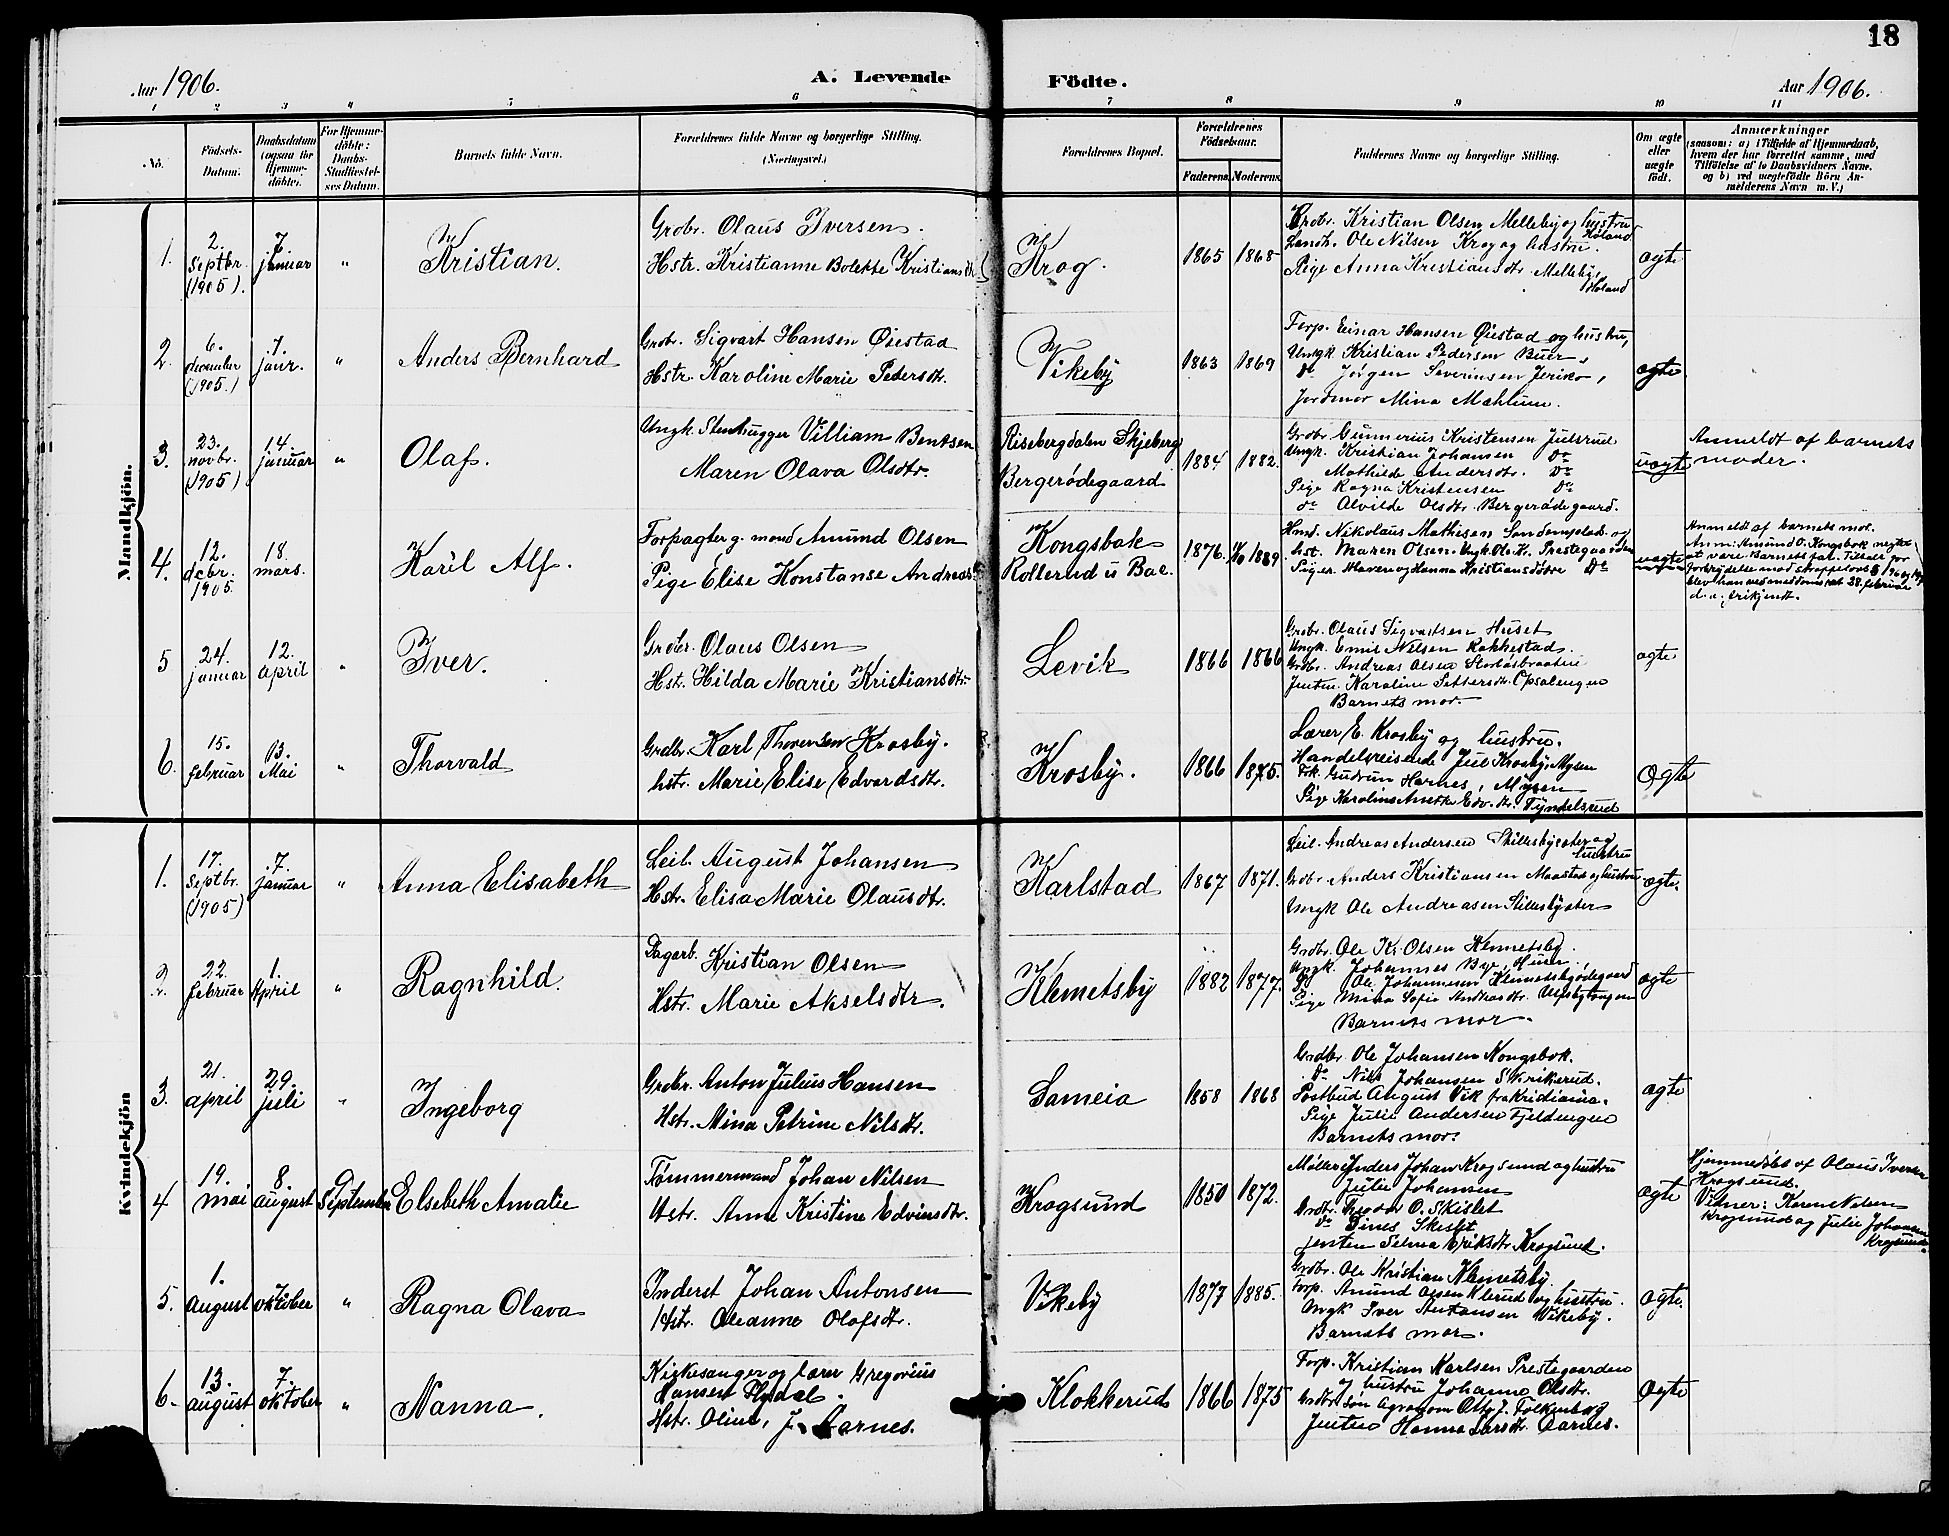 18
Aar 1906.
A. Levende
Födte.
Aar 1906.
1 2 3 4 5 6 7 8 9 10 11
No.
Födsels-Datum.
Daabsdatum (ogsaa for Hjemme-döbte).
For Hjemme-döbte: Daabs-Stadfæstel-ses Datum.
Barnets fulde Navn.
Forældrenes fulde Navne og borgerlige Stilling. (Næringsvei.)
Forældrenes Bopæl.
Forældrenes Födselsaar.
Faderens. Moderens.
Faddernes Navne og borgerlige Stilling.
Om ægte eller uægte födt.
Anmærkninger
(saasom: a) i Tilfælde af Hjemmedaab,
hvem der har forrettet samme, med
Tilföielse af to Daabsvidners Navne,
og b) ved uægtefödte Börn An-
melderens Navn m. V.)
Mandkjön.
1. 2. Septbr. (1905). 7. januar " Kristian.
Grdbr. Olaus Iversen.
Hstr. Kristianne Bolette Kristiansdtr.
Krog. 1865 1868
Grdbr. Kristian Olsen Melleby og hustru Høland
Landh. Ole Nilsen Krog og hustru.
Pige Anna Kristiansdtr. Melleby, Høland
ægte
2. 6. december (1905.) 7. janr. " Anders Bernhard
Grdbr. Sigvart Hansen Øiestad
Hstr. Karoline Marie Pedersdtr.
Vikeby 1863 1869
Forp. Einar Hansen Øiestad og hustru,
Ungk. Kristian Pedersen Buer,
do Jørgen Severinsen Jeriko,
Jordmor Mina Mæhlum.
ægte
3. 23. novbr. (1905) 14 januar " Olaf.
Ungk. Stenhugger Villiam Bentsen
Maren Olava Olsdtr.
Risebergdalen Skjeberg
Bergerødegaard 1884 1882.
Grdbr. Gunnerius Kristensen Julsrud
Ungk. Kristian Johansen Do
Mathilde Andersdtr. Do
Pige Ragna Kristensen Do
do Alvilde Olsdtr. Bergerødegaard.
uægte
Anmeldt af barnets moder.
4. 12. dcbr. 1905. 18. mars. Karl Alf.
Forpagter g. mand Amund Olsen
Pige Elise Konstanse Andreasd.
Kongsbok
Rollerud i Bae. 1876. 1889.
Hmd. Nikolaus Mathisen Sandemplads og
hst. Maren Olsen. Ungk. Ole K. Prestegaarden
Piger Maren og Hanna Kristiansdøtre Do
uægte
Anmeldt af barnets mor.
Anm: Amund O. Kongsbok negtet
at være Barnets far. Tiltalt for
forbrydelse mod straffelovs § 196 og
blev han ved meddomsret 28. februar
d. a. frikjendt.
5 24. januar 12. april " Iver.
Grdbr. Olaus Olsen
Hst. Hilda Marie Kristiansdtr
Levik 1866 1866
Grdbr. Olaus Sigvartsen Huset
Ungk. Emil Nilsen Rakkestad.
Grdbr. Andreas Olsen Storlösbraaten
Jenten Karoline Pettersdtr. Opsalengen
Barnets mor.
ægte
6. 15. februar 13. Mai " Thorvald
Grdbr. Karl Thorensen Krosby.
hstr. Marie Elise Edvardsdtr.
Krosby. 1866 1875.
Lærer E. Krosby og hustru.
Handelsreisende Juul Krosby, Mysen
Frk. Gudrun Harnes, Mysen
Pige Karoline Anette Edv.dtr. Tyndelsrud
Ægte
Kvindekjön
1. 17. Septbr. (1905) 7. januar " Anna Elisabeth
Leil. August Johansen
Hstr. Elisa Marie Olausdtr.
Karlstad 1867 1871.
Leil. Andreas Andersen Skillebyæter og hustru
Grdbr Anders Kristiansen Maastad og hustru
Ungk Ole Andreasen Skillebyæter
ægte.
2. 22. februar 1. April " Ragnhild.
Dagarb. Kristian Olsen
Hstr. Marie Akselsdtr.
Klemetsby 1882 1877.
Grdbr. Ole Kr. Olsen Klemetsby.
Ungk. Johannes Bye, Huen.
Do Ole Johannesen Klemetsbyødegaard
Pige Mina Sofie Andreasdtr. Ulfsbytangen
Barnets mor.
ægte
3. 21. april 29. juli " Ingeborg
Grdbr. Anton Julius Hansen
Hstr. Mina Petrine Nilsdtr.
Sameia 1858 1868
Grdbr. Ole Johansen Kongsbok.
do Nils Johansen Skrikerud.
Postbud August Vik fra Kristiania.
Pige Julie Andersen Fjeldengen
Barnets mor.
ægte
4 19. mai 8. august 9 September Elsebeth Amalie
Tömmermand Johan Nilsen
Hstr. Anne Kristine Edvinsdtr.
Krogsund 1850 1872.
Møller Anders Johan Krogsund og hustru
Julie Johansen
Grdbr. Theodor O. Skislet
do Dines Skislet
Jenten Selma Eriksdtr Krogsund.
ægte
Hjemmedöbt af Olaus Iversen
Krogsund.
Vidner: Karen Nilsen
Krogsund og Julie Johansen
Krogsund.
5. 1. august 7 oktober " Ragna Olava
Inderst Johan Antonsen
Hstr. Oleanne Olofsdtr.
Vikeby 1877 1885.
Grdbr. Ole Kristian Klemetsby.
Forp. Amund Olsen Klerud og hustru.
Ungk Iver Antonsen Vikeby.
Barnets mor.
ægte.
6. 13. august 7. oktober " Nanna.
Kirkesanger og lærer Gregorius
Hansen
Hstr. Oline, J. Aarnes.
Klokkerud 1866 1875
Forp. Kristian Karlsen Prestegaarden
og hustru Johanne Olsdtr.
Grdbr. Søn Agronom Otto J. Folkenborg
Jenten Hanna Larsdtr Aarnes.
Ægte